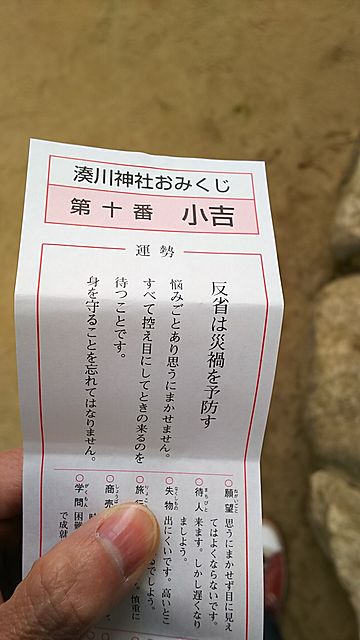 湊川神社おみくじ
第十番 小吉
運勢
反省は災禍を予防す
悩みごとあり思うにまかせません。
すべて控え目にしてときの来るのを
待つことです。
身を守ることを忘れてはなりません。
○願望 思うにまかせず目に見え
てはよくならないです。
○待人 来ます。しかし遅くなり
ましよう。
○失物 出にくいです。高いとこ
るでしよう。
○旅行
慎重に
○商売
○学問 困難
で成就